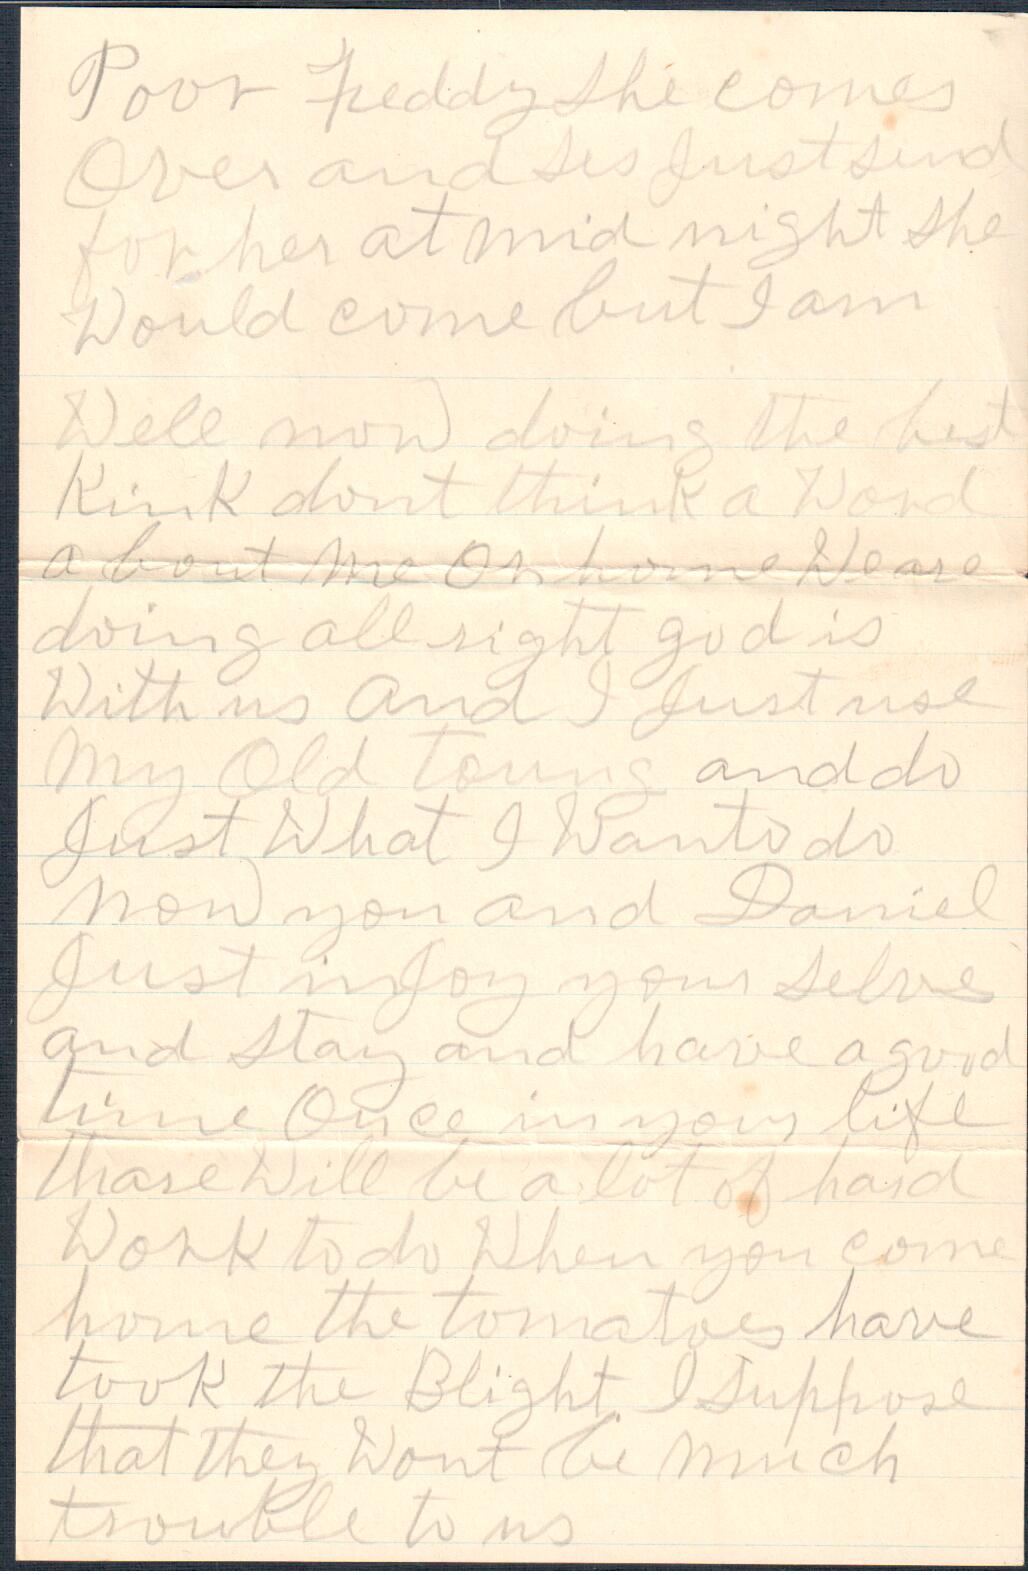 Poor Freddy she comes
Over and ses Just send
for her at mid night she
Would come but I am
Well now doing the best
Kink dont think a Word
a bout me Or home We are
doing all right god is
With us and I Just use
My Old toung and do
Just What I Want to do
Now you and Daniel
Just in Joy your selve
and stay and have a good
time Once in your life
thare Will be a lot of hard
Work to do When you come
home the tomatoes have
took the Blight I suppose
that they Wont be much
trouble to us